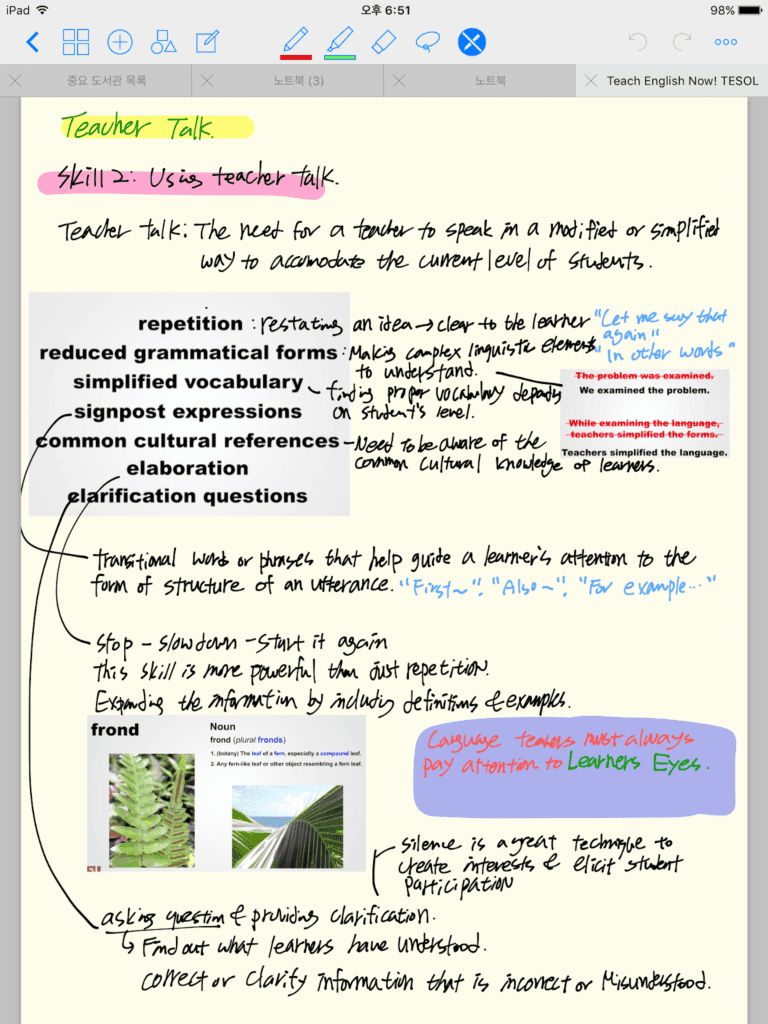 iPad
오후 6:51
98%
중요 도서관 목록
노트북 (3)
노트북
Teach English Now! TESOL
Teacher Talk.
Skill 2: Using teacher talk.
Teacher talk: The need for a teacher to speak in a modified or simplified
way to accomodate the current level of students.
repetition : restating an idea → clear to the learner "Let me say that
again"
reduced grammatical forms : Making complex linguistic elements "In other words"
to understand.
simplified vocabulary finding proper vocabulary depending
on student's level.
The problem was examined.
We examined the problem.
While examining the language,
teachers simplified the forms.
Teachers simplified the language.
signpost expressions
common cultural references - Need to be aware of the
common cultural knowledge of learners.
elaboration
clarification questions
transitional word or phrases that help guide a learner's attention to the
form of structure of an utterance. "First~", "Also~", "For example..."
Stop - slow down - start it again
This skill is more powerful than just repetition.
Expanding the information by including definitions & examples.
frond
Noun
frond (plural fronds)
1. (botany) The leaf of a fern, especially a compound leaf.
2. Any fern-like leaf or other object resembling a fern leaf.
Language teachers must always
pay attention to Learners Eyes.
silence is a great technique to
create interests & elicit student
participation
asking question & providing clarification.
↳ Find out what learners have understood.
correct or clarify information that is incorrect or misunderstood.